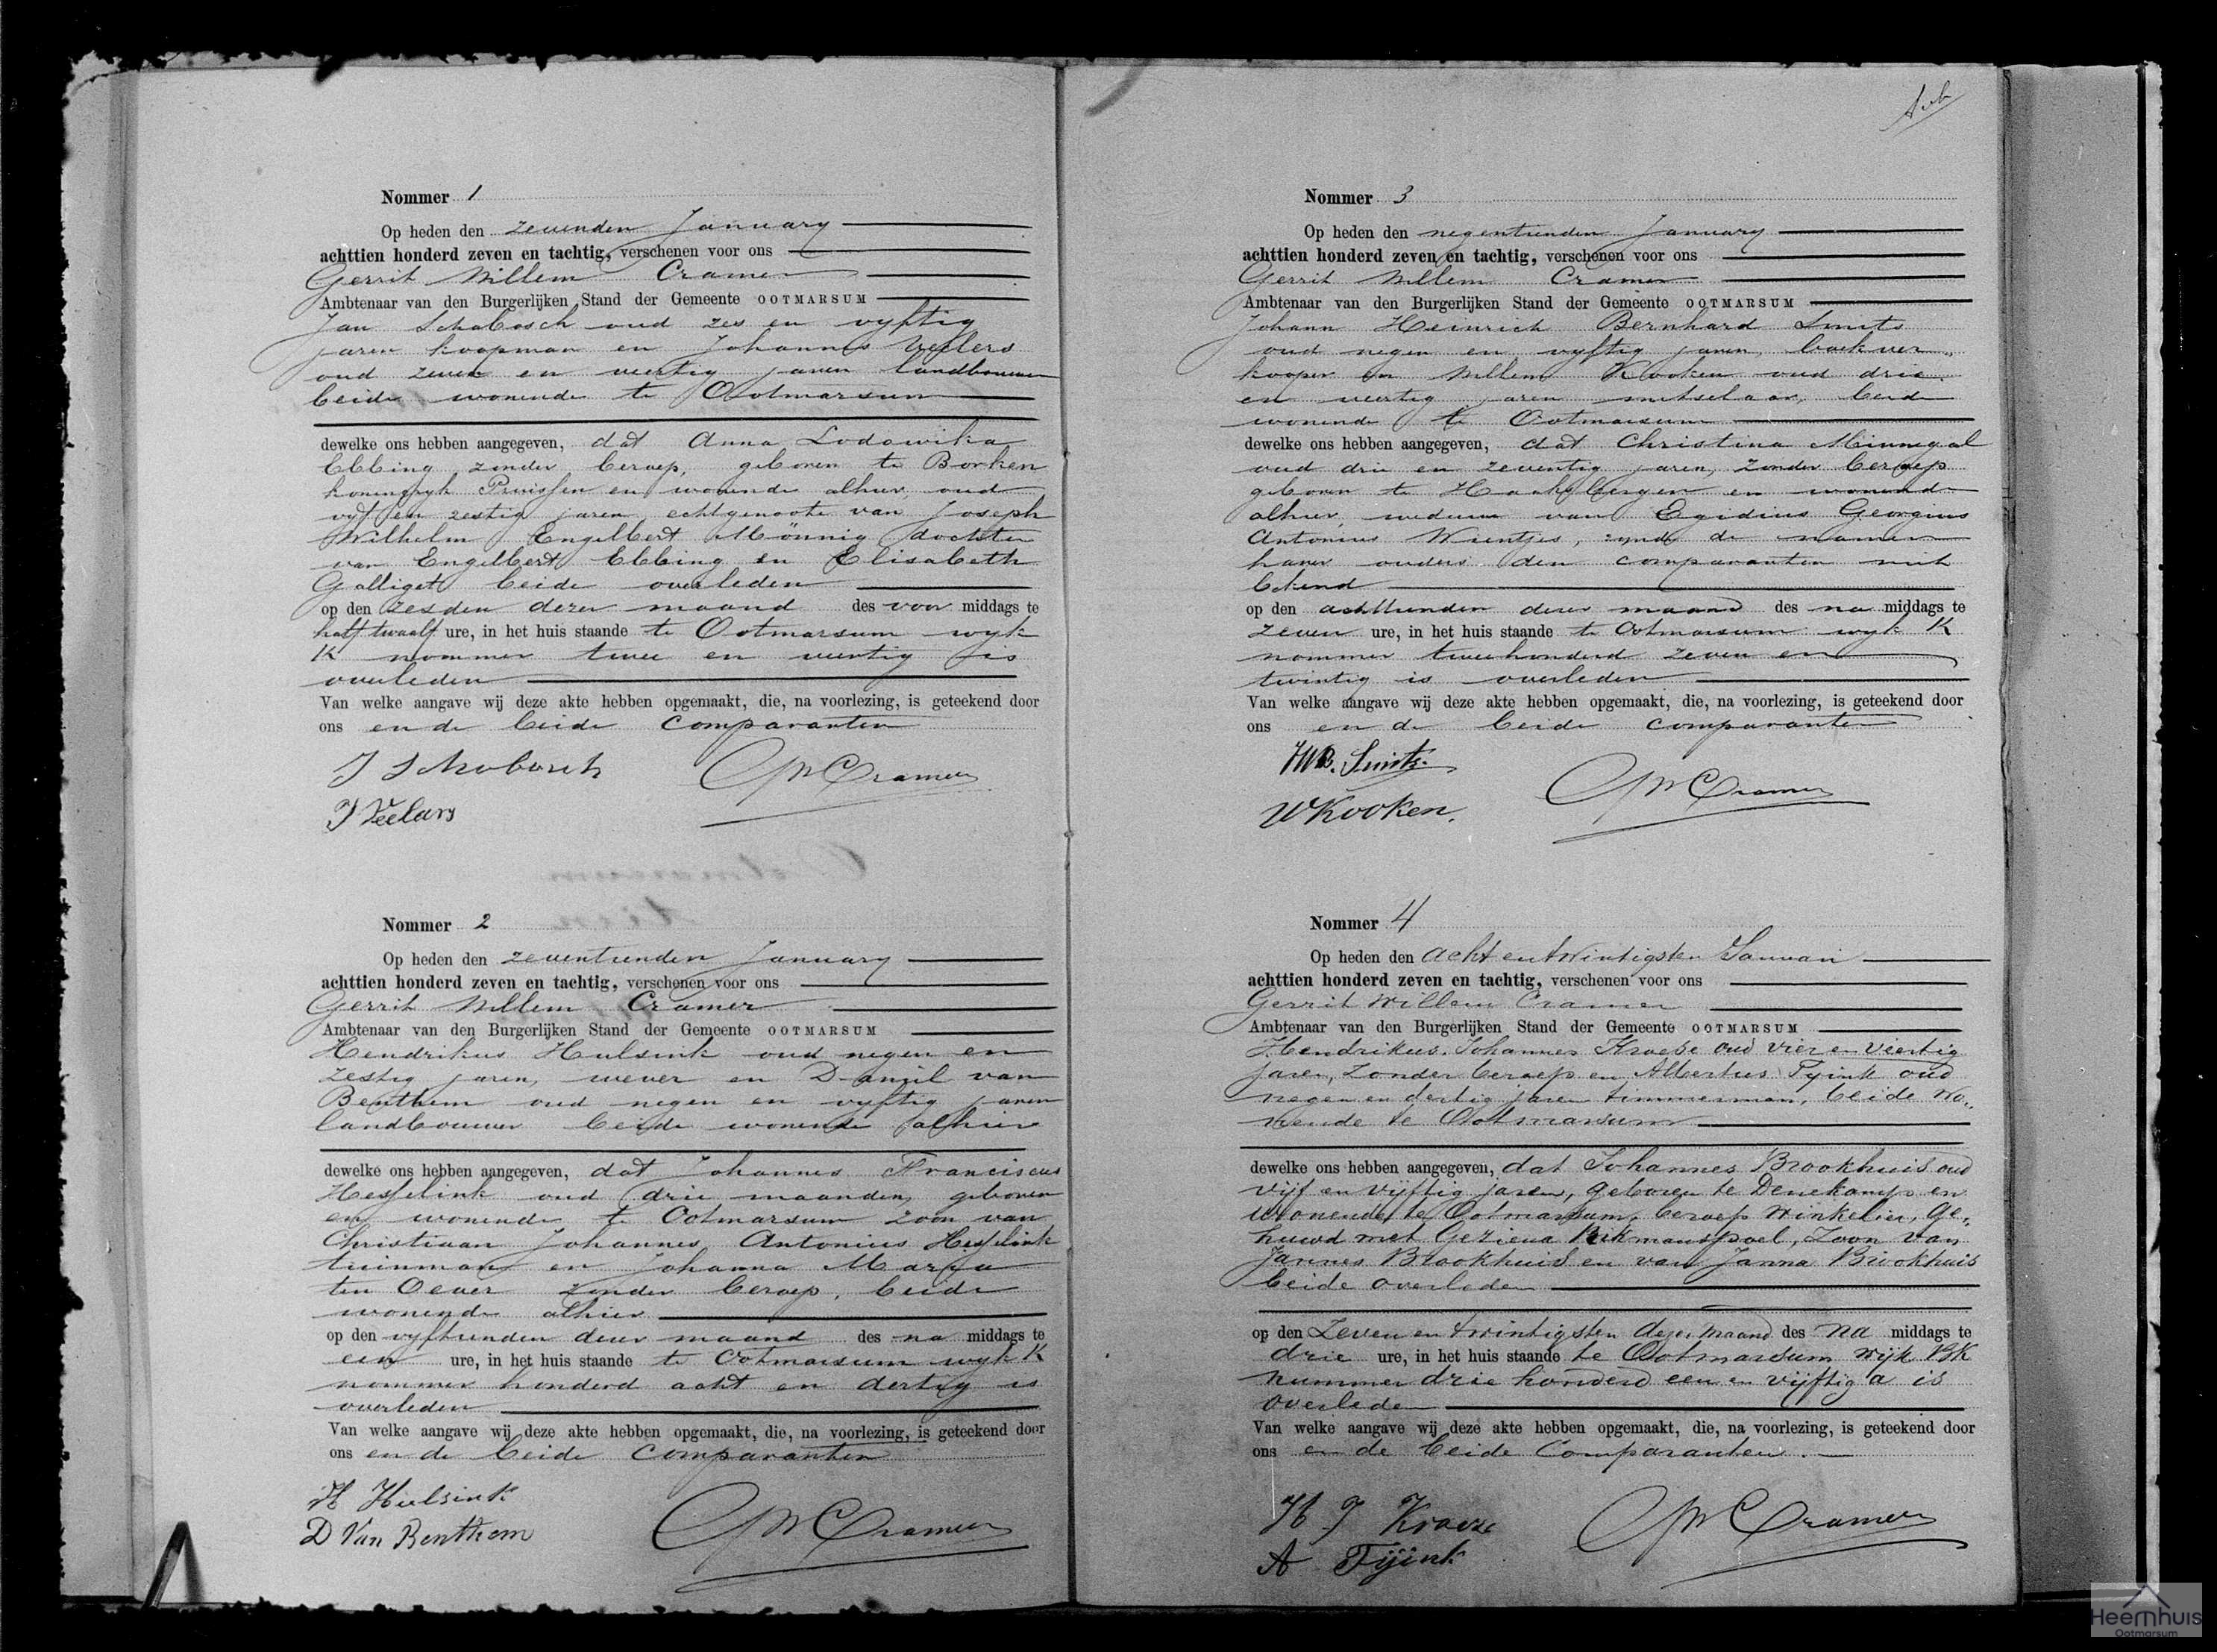 Nommer 1
Op heden den zevenden January
achttien honderd zeven en tachtig, verschenen voor ons
Gerrit Willem Cramer
Ambtenaar van den Burgerlijken Stand der Gemeente OOTMARSUM
Jan Schabosch oud zes en vyftig
jaren koopman en Johannes Veelers
oud zeven en veertig jaren landbouwer
beide wonende te Ootmarsum
dewelke ons hebben aangegeven, dat Anna Lodowika
Ebbing zonder beroep, geboren te Borken
koningryk Pruissen en wonende alhier, oud
vyf en zestig jaren echtgenoote van Joseph
Wilhelm Engelbert Mönnig dochter
van Engelbert Ebbing en Elisabeth
Galliget beide overleden
op den zesden dezer maand des voor middags te
half twaalf ure, in het huis staande te Ootmarsum wyk
K nommer twee en veertig is
overleden
Van welke aangave wij deze akte hebben opgemaakt, die, na voorlezing, is geteekend door
ons en de beide comparanten
J Schabosch GWCramer
J Veelars
Nommer 2
Op heden den zeventienden January
achttien honderd zeven en tachtig, verschenen voor ons
Gerrit Willem Cramer
Ambtenaar van den Burgerlijken Stand der Gemeente OOTMARSUM
Hendrikus Hulsink oud negen en
zestig jaren, wever en Daniil van
Benthem oud negen en vyftig jaren
landbouwer beide wonende alhier
dewelke ons hebben aangegeven, dat Johannes Franciscus
Hesselink oud drie maanden, geboren
en wonende te Ootmarsum zoon van
Christiaan Johannes Antonius Hesselink
tuinman en Johanna Maria
ten Oever zonder beroep, beide
wonende alhier
op den vyftienden dezer maand des na middags te
een ure, in het huis staande te Ootmarsum wyk K
nommer honderd acht en dertig is
overleden
Van welke aangave wij deze akte hebben opgemaakt, die, na voorlezing, is geteekend door
ons en de beide comparanten
H Hulsink
D Van Benthem GWCramer
Nommer 3
Op heden den negentienden January
achttien honderd zeven en tachtig, verschenen voor ons
Gerrit Willem Cramer
Ambtenaar van den Burgerlijken Stand der Gemeente OOTMARSUM
Johann Heinrich Bernhard Smits
oud negen en vyftig jaren, boekver„
kooper en Willem Kooken oud drie
en veertig jaren metselaar, beide
wonende te Ootmarsum
dewelke ons hebben aangegeven, dat Christina Minnegal
oud drie en zeventig jaren, zonder beroep
geboren te Haaksbergen en wonende
alhier, weduwe van Egidius Georgius
Antonius Wientjes, zynde de namen
harer ouders den comparanten niet
bekend
op den achttienden dezer maand des na middags te
zeven ure, in het huis staande te Ootmarsum wyk K
nommer tweehonderd zeven en
twintig is overleden
Van welke aangave wij deze akte hebben opgemaakt, die, na voorlezing, is geteekend door
ons en de beide comparanten
JHB. Smits. GWCramer
WKooken.
Nommer 4
Op heden den acht en twintigsten Januari
achttien honderd zeven en tachtig, verschenen voor ons
Gerrit Willem Cramer
Ambtenaar van den Burgerlijken Stand der Gemeente OOTMARSUM
Hendrikus Johannes Kroeze oud vier en veertig
jaren, zonder beroep en Albertus Tyink oud
negen en dertig jaren timmerman, beide wo„
nende te Ootmarsum
dewelke ons hebben aangegeven, dat Johannes Brookhuis oud
vijf en vijftig jaren, geboren te Denekamp en
wonende te Ootmarsum, beroep winkelier, ge„
huwd met Geziena Nikmanspoel, Zoon van
Jannes Brookhuis en van Janna Brookhuis
beide overleden
op den Zeven en twintigsten dezer maand des na middags te
drie ure, in het huis staande te Ootmarsum wijk K
nummer drie honderd een en vijftig a is
overleden
Van welke aangave wij deze akte hebben opgemaakt, die, na voorlezing, is geteekend door
ons en de beide Comparanten.
H J Kroeze GWCramer
A Tijink
Heemhuis
Ootmarsum